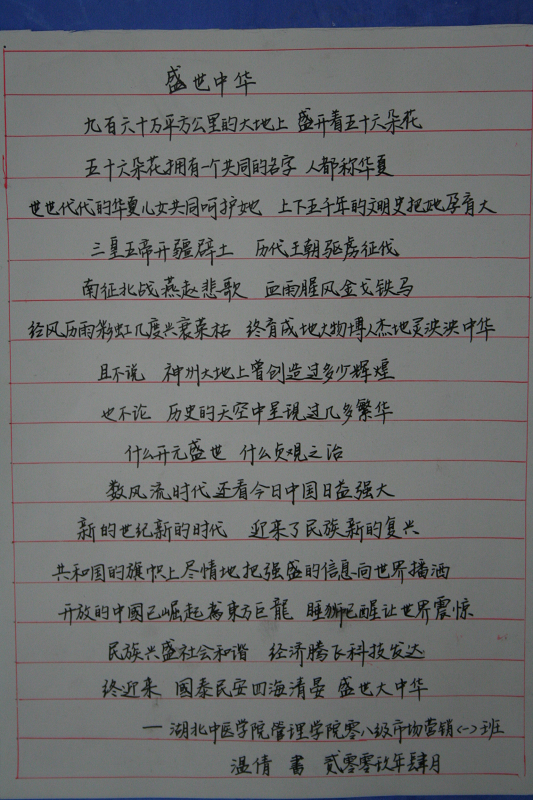 盛世中华
九百六十万平方公里的大地上 盛开着五十六朵花
五十六朵花拥有一个共同的名字 人都称华夏
世世代代的华夏儿女共同呵护她 上下五千年的文明史把她孕育大
三皇五帝开疆辟土 历代王朝驱虏征伐
南征北战燕赵悲歌 血雨腥风金戈铁马
经风历雨彩虹几度兴衰荣祜 终育成地大物博人杰地灵泱泱中华
且不说 神州大地上曾创造过多少辉煌
也不论 历史的天空中呈现过几多繁华
什么开元盛世 什么贞观之治
数风流时代还看今日中国日益强大
新的世纪新的时代 迎来了民族新的复兴
共和国的旗帜上尽情地把强盛的信息向世界播洒
开放的中國已崛起為東方巨龍 睡狮已醒让世界震惊
民族兴盛社会和谐 经济腾飞科技发达
终迎来 國泰民安四海清晏 盛世大中华
——湖北中医学院管理学院零八级市场营销<一>班
温倩 書 贰零零玖年肆月